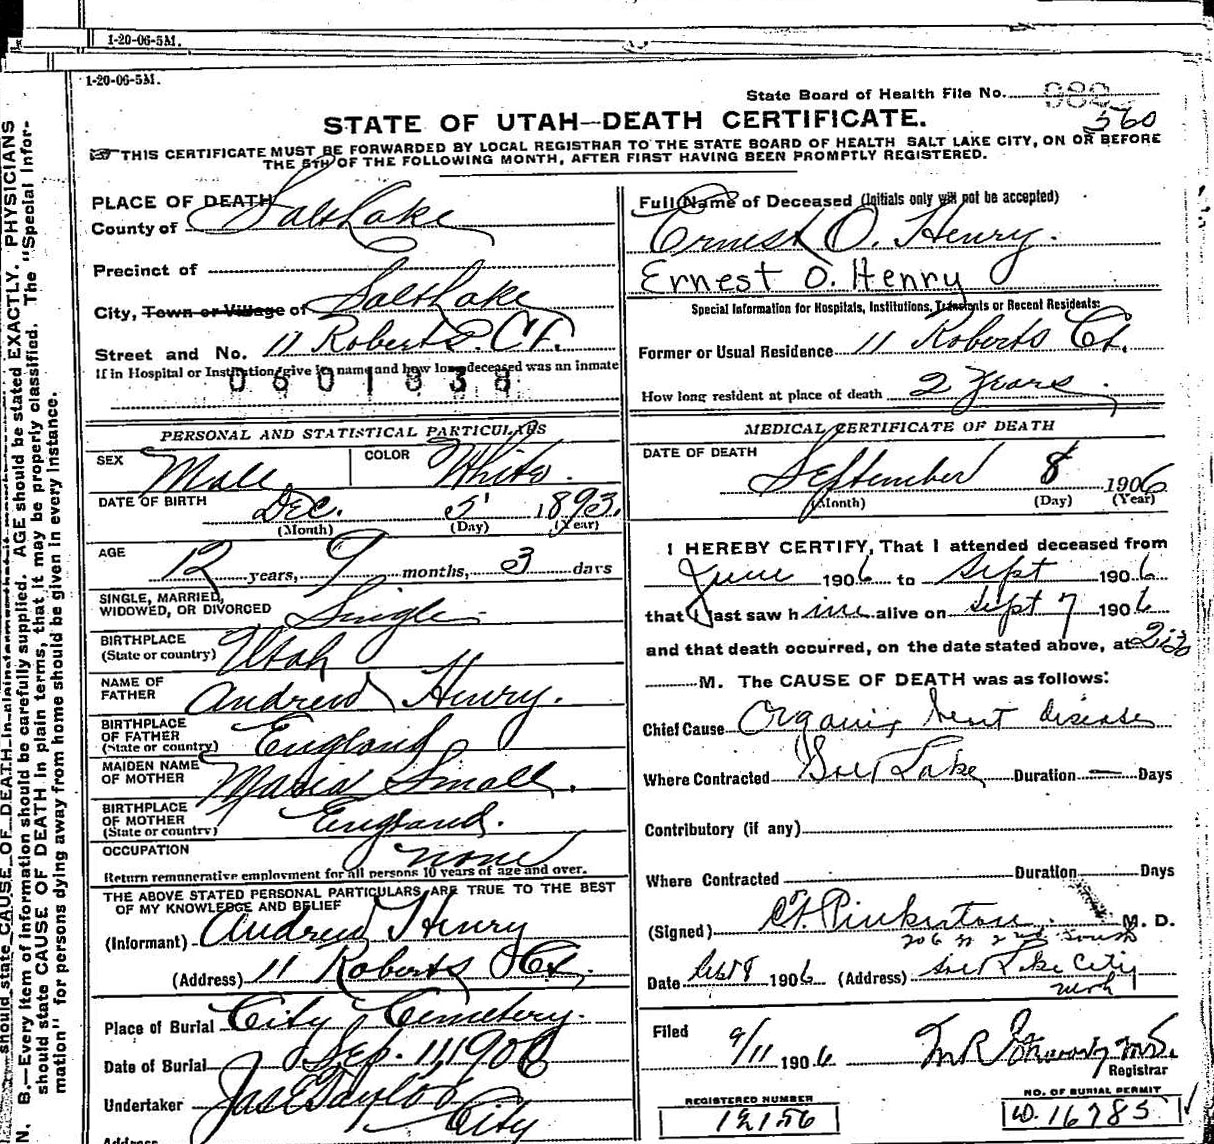 1-20-06-5M.
1-20-06-5M.
State Board of Health File No. 982
360
STATE OF UTAH—DEATH CERTIFICATE.
THIS CERTIFICATE MUST BE FORWARDED BY LOCAL REGISTRAR TO THE STATE BOARD OF HEALTH SALT LAKE CITY, ON OR BEFORE
THE 5TH OF THE FOLLOWING MONTH, AFTER FIRST HAVING BEEN PROMPTLY REGISTERED.
PLACE OF DEATH
County of Salt Lake
Precinct of
City, Town or Village of Salt Lake
Street and No. 11 Roberts. Ct.
If in Hospital or Institution, give its name and how long deceased was an inmate
0601838
PERSONAL AND STATISTICAL PARTICULARS
SEX Male COLOR White.
DATE OF BIRTH Dec. 5 1893.
(Month) (Day) (Year)
AGE 12 years, 9 months, 3 days
SINGLE, MARRIED,
WIDOWED, OR DIVORCED Single
BIRTHPLACE
(State or country) Utah
NAME OF
FATHER Andrew Henry.
BIRTHPLACE
OF FATHER
(State or country) England
MAIDEN NAME
OF MOTHER Maria Small.
BIRTHPLACE
OF MOTHER
(State or country) England.
OCCUPATION none
Return remunerative employment for all persons 10 years of age and over.
THE ABOVE STATED PERSONAL PARTICULARS ARE TRUE TO THE BEST
OF MY KNOWLEDGE AND BELIEF
(Informant) Andrew Henry
(Address) 11 Roberts Ct.
Place of Burial City Cemetery.
Date of Burial Sep. 11, 1906
Undertaker Jas E Taylor
City
Address
Full Name of Deceased (Initials only will not be accepted)
Ernest O. Henry.
Ernest O. Henry
Special Information for Hospitals, Institutions, Transients or Recent Residents:
Former or Usual Residence 11 Roberts Ct.
How long resident at place of death 2 Years.
MEDICAL CERTIFICATE OF DEATH
DATE OF DEATH
September 8 1906
(Month) (Day) (Year)
I HEREBY CERTIFY, That I attended deceased from
June 1906 to Sept 1906
that I last saw him alive on Sept 7 1906
and that death occurred, on the date stated above, at
M. The CAUSE OF DEATH was as follows:
Chief Cause Organic heart disease
Where Contracted Salt Lake Duration — Days
Contributory (if any)
Where Contracted Duration Days
(Signed) Pinkerton. M. D.
206 2nd South
Date Sept 8 1906 (Address) Salt Lake City
Utah
Filed 9/11 1906
Registrar
REGISTERED NUMBER
12156
NO. OF BURIAL PERMIT
16785
N. B.—Every item of information should be carefully supplied. AGE should be stated EXACTLY. PHYSICIANS
should state CAUSE OF DEATH in plain terms, that it may be properly classified. The "Special Infor-
mation" for persons dying away from home should be given in every instance.